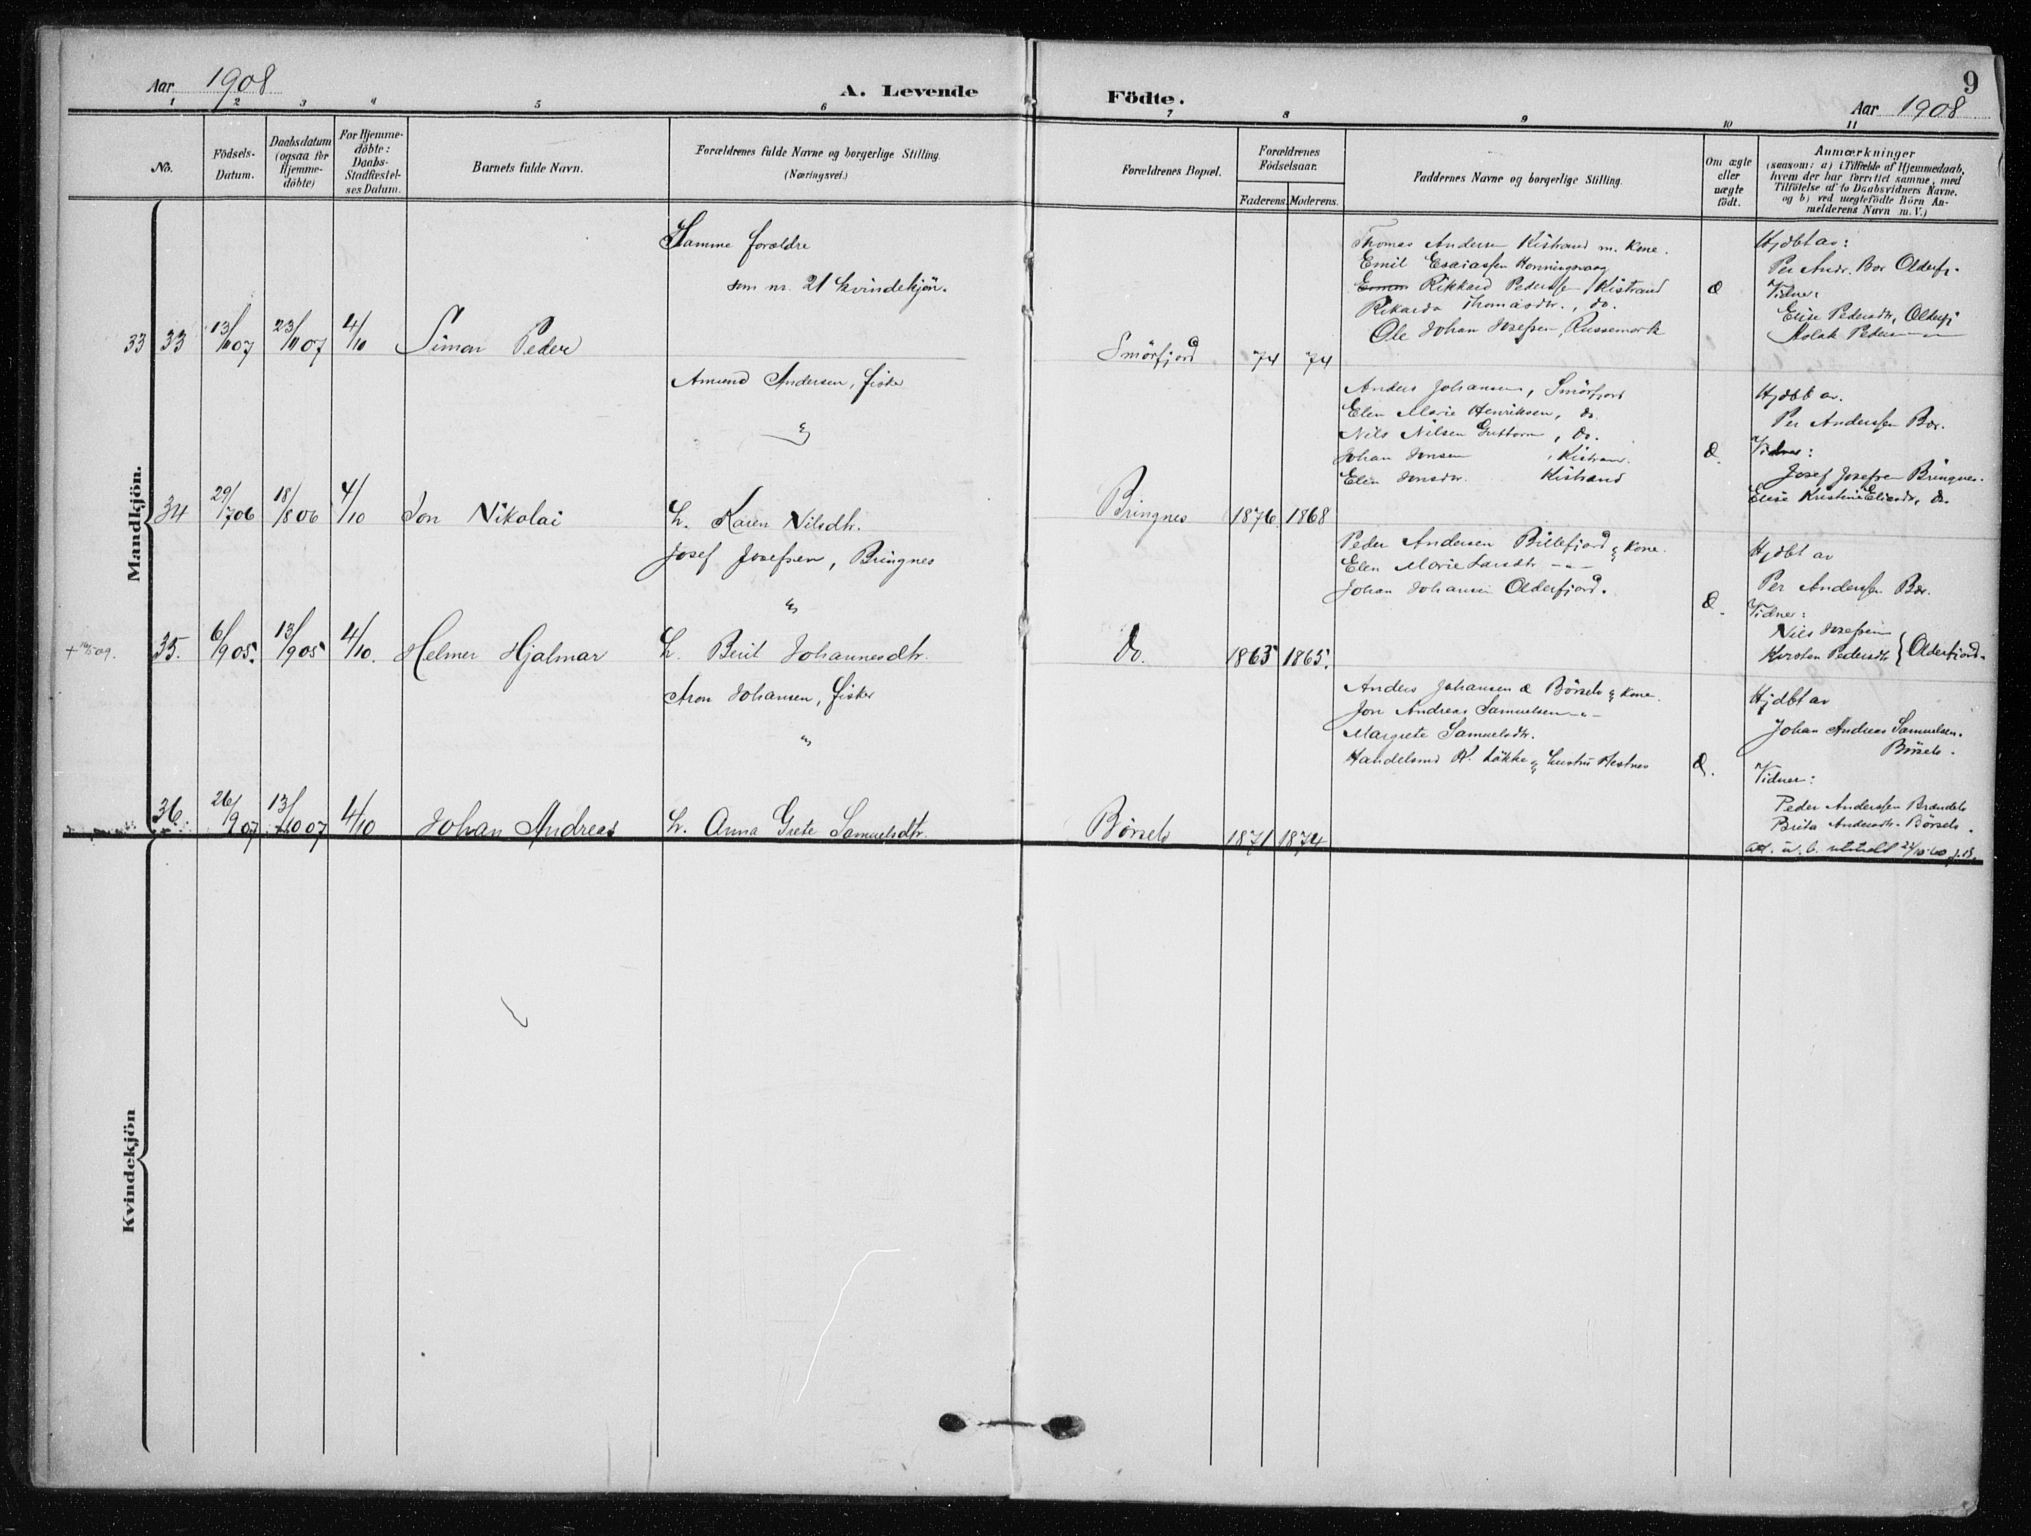 Aar 1908
A. Levende
Födte.
9
Aar 1908
1 2 3 4 5 6 7 8 9 10 11
No.
Födsels-
Datum.
Daabsdatum
(ogsaa for
Hjemme-
döbte)
For Hjemme-
döbte:
Daabs-
Stadfæstel-
ses Datum.
Barnets fulde Navn.
Forældrenes fulde Navne og borgerlige Stilling
(Næringsvei.)
Forældrenes Bopæl.
Forældrenes
Födselsaar.
Faderens.
Moderens.
Faddernes Navne og borgerlige Stilling.
Om ægte
eller
uægte
födt.
Anmærkninger
(saasom: a) i Tilfælde af Hjemmedaab,
hvem der har forrettet samme, med
Tilföielse af to Daabsvidners Navne.
og b) ved uægtefödte Börn An-
melderens Navn m. V.)
Mandkjön.
33 33
13/11 07
23/11 07
4/10
Simon Peder
Samme forældre
som nr. 21 kvindekjön.
Smörfjord
74
74
Thomas Andersen Kistrand m. Kone.
Emil Esaiassen Honningsvaag
Rikkard Pedersen, Kistrand
Rikarda Thomasdtr., do.
Ole Johan Josefsen, Russemark
Æ
Hjdbt av:
Per Andr. Bær Olderfj.
Vidner:
Elise Pedersdtr, Olderfj
Aslak Pedersen
34
29/7 06
18/8 06
4/10
Jon Nikolai
Amund Andersen, fisker
&
H. Karen Nilsdtr.
Bringnes
1876
1868
Anders Johansen, Smörfjord
Elen Marie Henriksen, do.
Nils Nilsen Guttorm, do.
Johan Jonsen, Kistran.
Elin Jonsdtr. Kistrand
Æ.
Hjdbt av.
Per Anderssen Bær.
Vidner:
Josef Josefsen Bringnes
Elise Kristine Eliasdtr, do.
+ 16/5 09.
35.
6/9 05.
13/9 05
4/10.
Helmer Hjalmar
Josef Josefsen, Bringnes
&
H. Berit Johannesdtr.
do.
1863
1865.
Peder Andersen Billefjord & Kone.
Elen Marie Larsdtr - - -
Johan Johansen Olderfjord.
Æ.
Hjdbt av
Per Anderssen Bær.
Vidner:
Nils Josefsen
Kirsten Pedersdtr } Olderfjord.
36.
26/9 07
13/10 07
4/10
Johan Andreas
Aron Johansen, fisker
&
H. Anna Grete Samuelsdtr.
Börselv
1871
1874
Anders Johansen Börselv & Kone.
Jon Andreas Samuelsen - -
Margrete Samuelsdtr.
Handelsmd H. Lökke & hustru Hestnes
Æ.
Hjdbt av
Johan Andreas Samuelsen.
Börselv.
Vidner:
Peder Anderssen Brændelv
Brita Andersdtr. Börselv.
att. u. b. utstedt 24/10-60
Kvindekjön